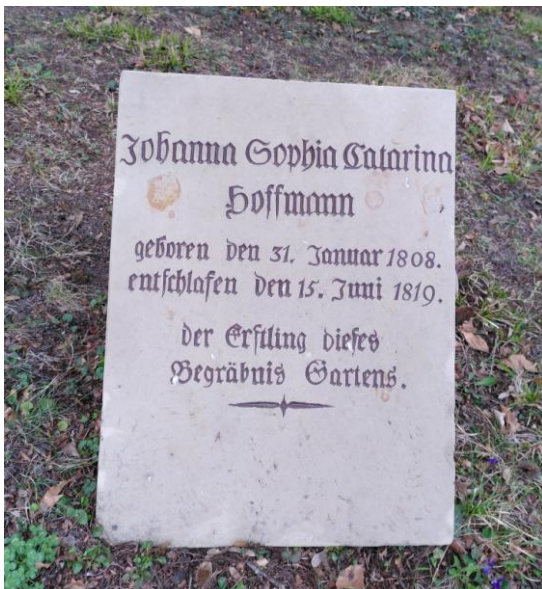 Johanna Sophia Catarina
Hoffmann
geboren den 31. Januar 1808.
entſchlafen den 15. Juni 1819.
der Erſtling dieſes
Begräbnis Gartens.